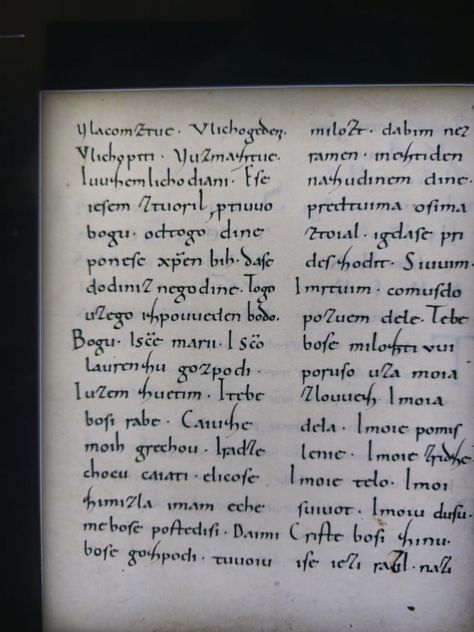 Vlacomztue. Vlichogeden.
Vlichopiti. Vuzmaztue.
Iuuzem lichodiani. Ese
iesem ztuoril protiuuo
bogu. odtogo dine
ponese xpen bih. dase
dodiniz negodine. Togo
uzego izpouueden bodo.
Bogu. Isce marii. I sco
laurenzu gozpodi.
Iuzem zuetim. I tebe
bosi rabe. Caiuze
moih grechou. Iradze
chocu caiati. elicose
zimizla imam eche
mebose postedisi. Daimi
bose gozpodi. tuuoiu
milozt. dabim nez
ramen. inestiden
nazudinem dine.
predtuima osima
ztoial. igdase pri
des zodit. Siuuim.
I mrtuim. comusdo
pozuem dele. Tebe
bose milosti vui
poruso uza moia
zlouueza. I moia
dela. I moie pomis
lenie. I moie zridze
I moie telo. I moi
siuuot. I moiu dusu.
Criste bosi zinu.
ise iezi razil. nazi